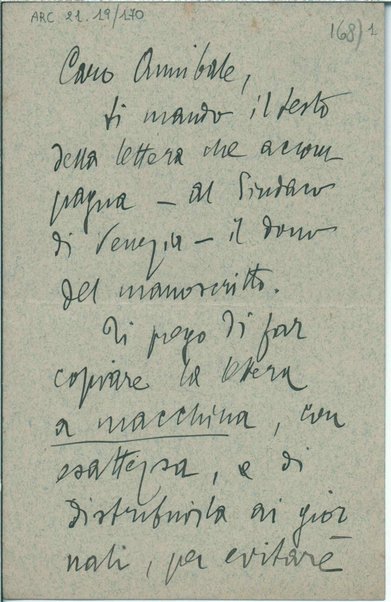 ARC 21.19/170
168) 1
Caro Annibale,
ti mando il testo
della lettera che accom
pagna – al Sindaco
di Venezia – il dono
del manoscritto.
Ti prego di far
copiare la lettera
a macchina, con
esattezza, e di
distribuirla ai gior
nali, per evitare